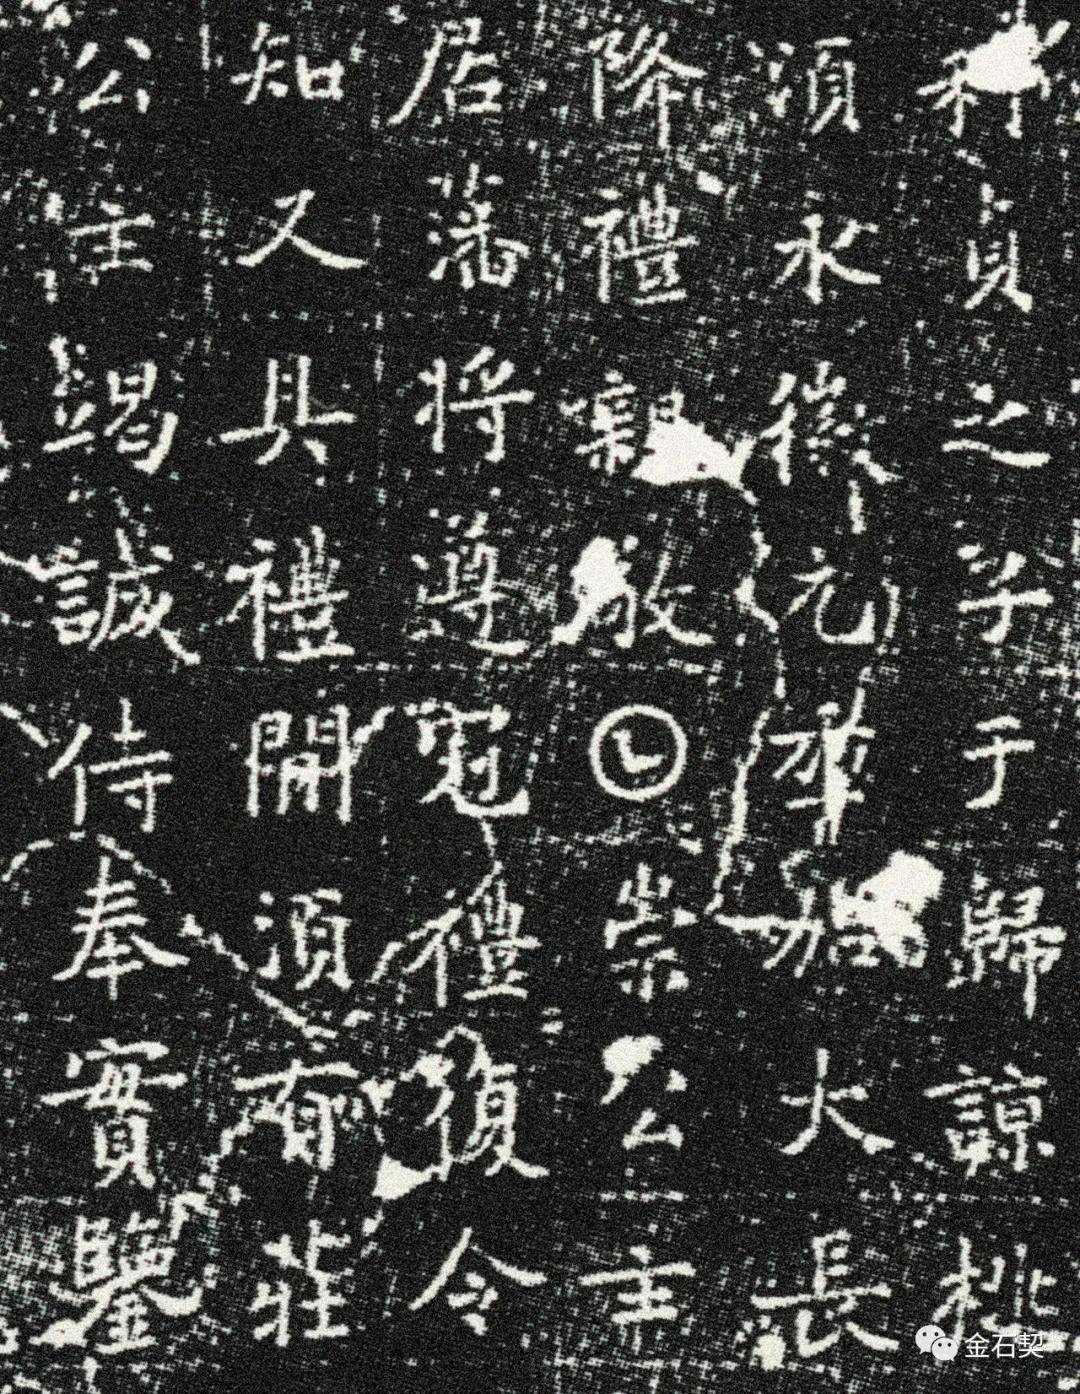 利貞之孚于歸諒桃
須永徽元年加大長
降禮親敬崇公主
居藩將遵冠禮復令
知又具禮開須有莊
公主竭誠侍奉實鑒
金石契